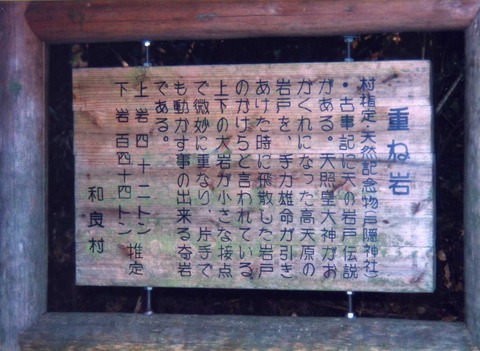 重ね岩
村指定 天然記念物(戸隠神社)
・古事記に天の岩戸伝説
がある。天照皇大神がお
かくれになった高天原の
岩戸を、手力雄命が引き
あけた時に飛散した岩戸
のかけらと言われている
上下の大岩が小さな接点
で微妙に重なり、片手で
も動かす事の出来る奇岩
である。
上岩 四十二トン 推定
下岩 百四十四トン
和良村